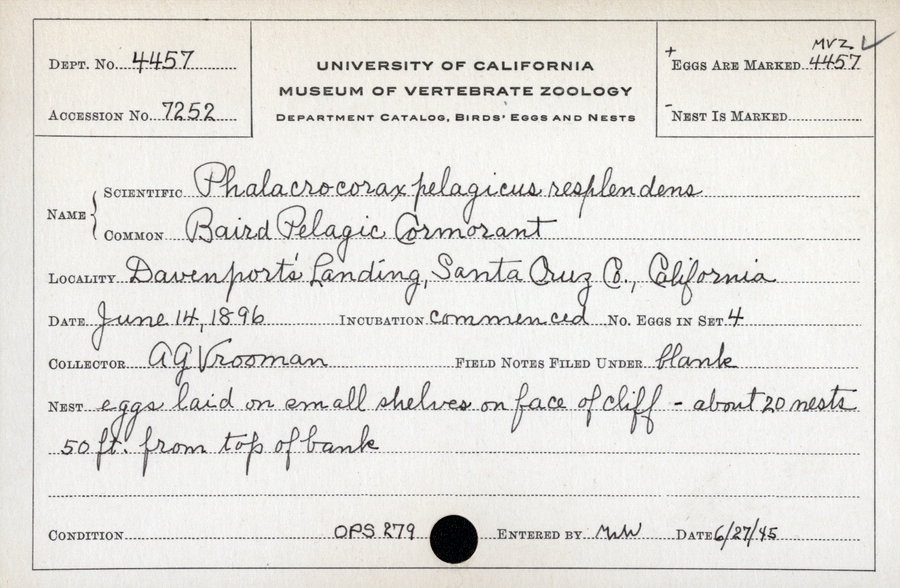 DEPT. NO. 4457
ACCESSION NO. 7252
UNIVERSITY OF CALIFORNIA
MUSEUM OF VERTEBRATE ZOOLOGY
DEPARTMENT CATALOG, BIRDS' EGGS AND NESTS
MVZ ✓
+ EGGS ARE MARKED 4457
- NEST IS MARKED
NAME { SCIENTIFIC Phalacrocorax pelagicus resplendens
COMMON Baird Pelagic Cormorant
LOCALITY Davenport's Landing, Santa Cruz Co., California
DATE June 14, 1896 INCUBATION commenced NO. EGGS IN SET 4
COLLECTOR AG Vrooman FIELD NOTES FILED UNDER blank
NEST eggs laid on small shelves on face of cliff - about 20 nests
50 ft. from top of bank
CONDITION OPS 279 ENTERED BY MW DATE 6/27/45